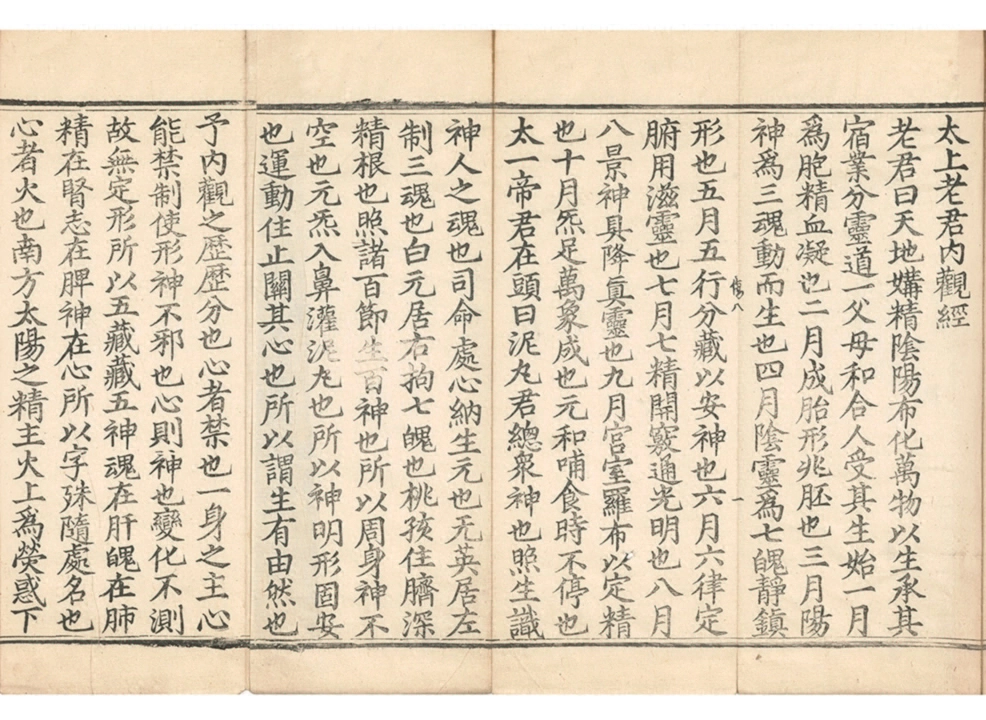 太上老君內觀經
老君曰天地媾精陰陽布化萬物以生承其
宿業分靈道一父母和合人受其生始一月
爲胞精血凝也二月成胎形兆胚也三月陽
神爲三魂動而生也四月陰靈爲七魄靜鎮
形也五月五行分藏以安神也六月六律定
腑用滋靈也七月七精開竅通光明也八月
八景神具降眞靈也九月宮室羅布以定精
也十月炁足萬象成也元和哺食時不停也
太一帝君在頭曰泥丸君總衆神也照生識
神人之魂也司命處心納生元也无英居左
制三魂也白元居右拘七魄也桃孩住臍深
精根也照諸百節生百神也所以周身神不
空也元炁入鼻灌泥丸也所以神明形固安
也運動住止關其心也所以謂生有由然也
予內觀之歷歷分也心者禁也一身之主心
能禁制使形神不邪也心則神也變化不測
故無定形所以五藏藏五神魂在肝魄在肺
精在腎志在脾神在心所以字殊隨處名也
心者火也南方太陽之精主火上爲熒惑下